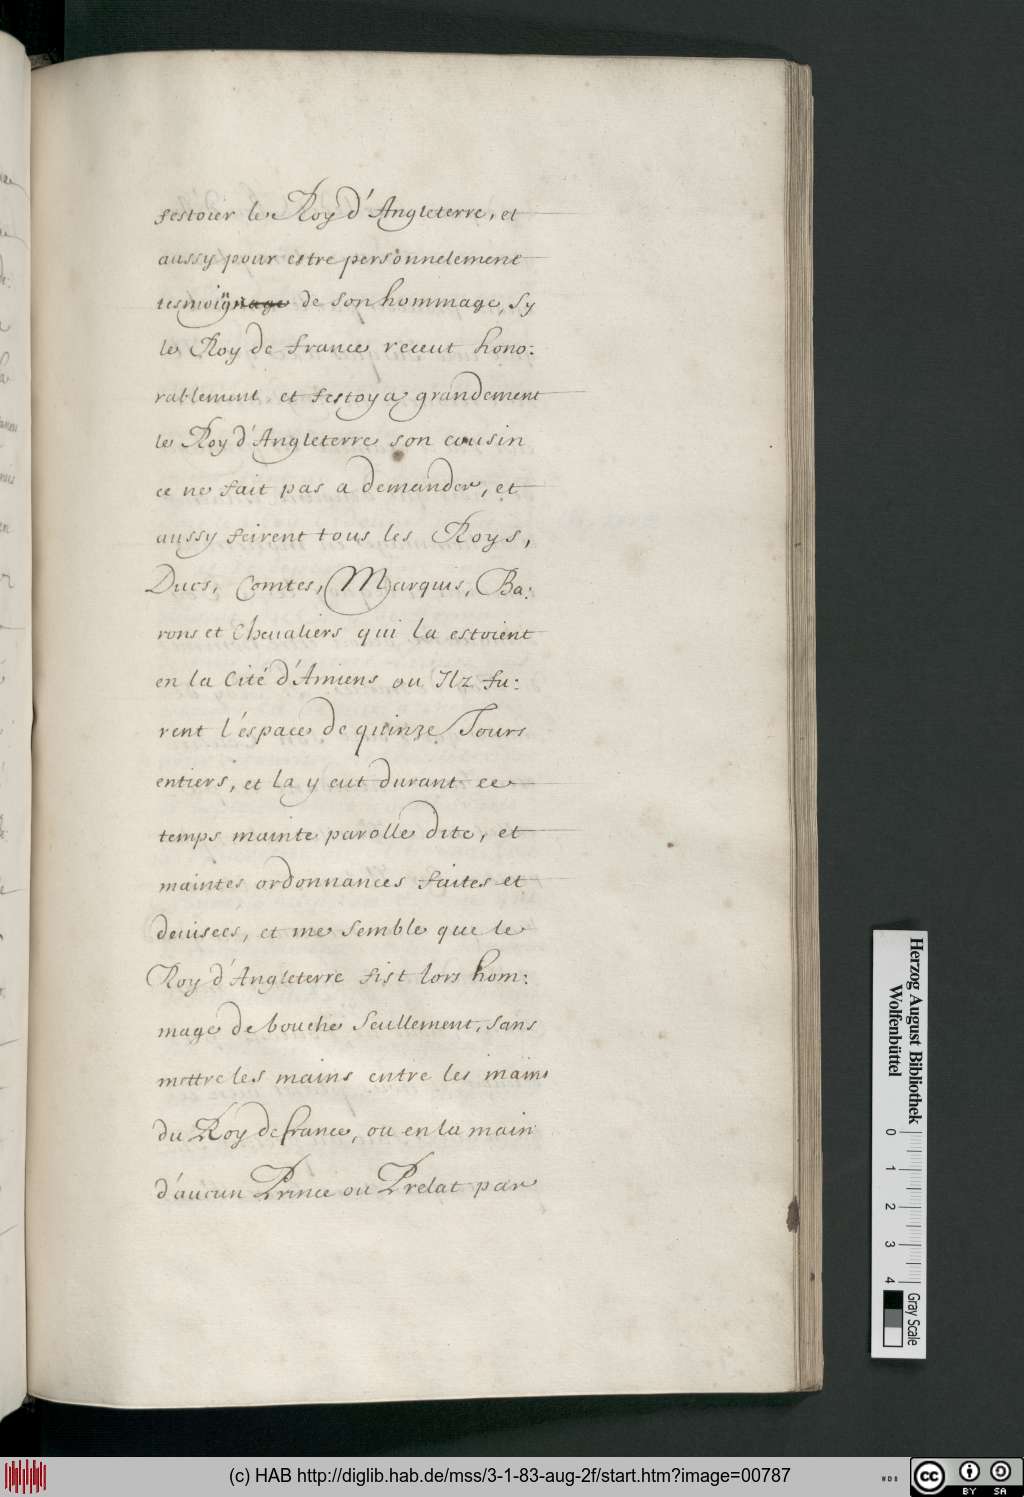 festoier le Roy d'Angleterre, et
aussy pour estre personnelement
tesmoignage de son hommage, sy
le Roy de france receut hono:
rablement et festoya grandement
le Roy d'Angleterre son cousin
ce ne fait pas a demander, et
aussy feirent tous les Roys,
Ducs, Comtes, Marquis, Ba:
rons et Chevaliers qui la estoient
en la Cité d'Amiens ou Ilz fu:
rent l'espace de quinze Jours
entiers, et la y eut durant ce
temps mainte parolle dite, et
maintes ordonnances faites et
deuisees, et me semble que le
Roy d'Angleterre fist lors hom:
mage de bouche seullement, sans
mettre les mains entre les mains
du Roy de france, ou en la main
d'aucun Prince ou Prelat par
Herzog August Bibliothek
Wolfenbüttel
0 1 2 3 4
Gray Scale
(c) HAB http://diglib.hab.de/mss/3-1-83-aug-2f/start.htm?image=00787
WDB
cc BY SA